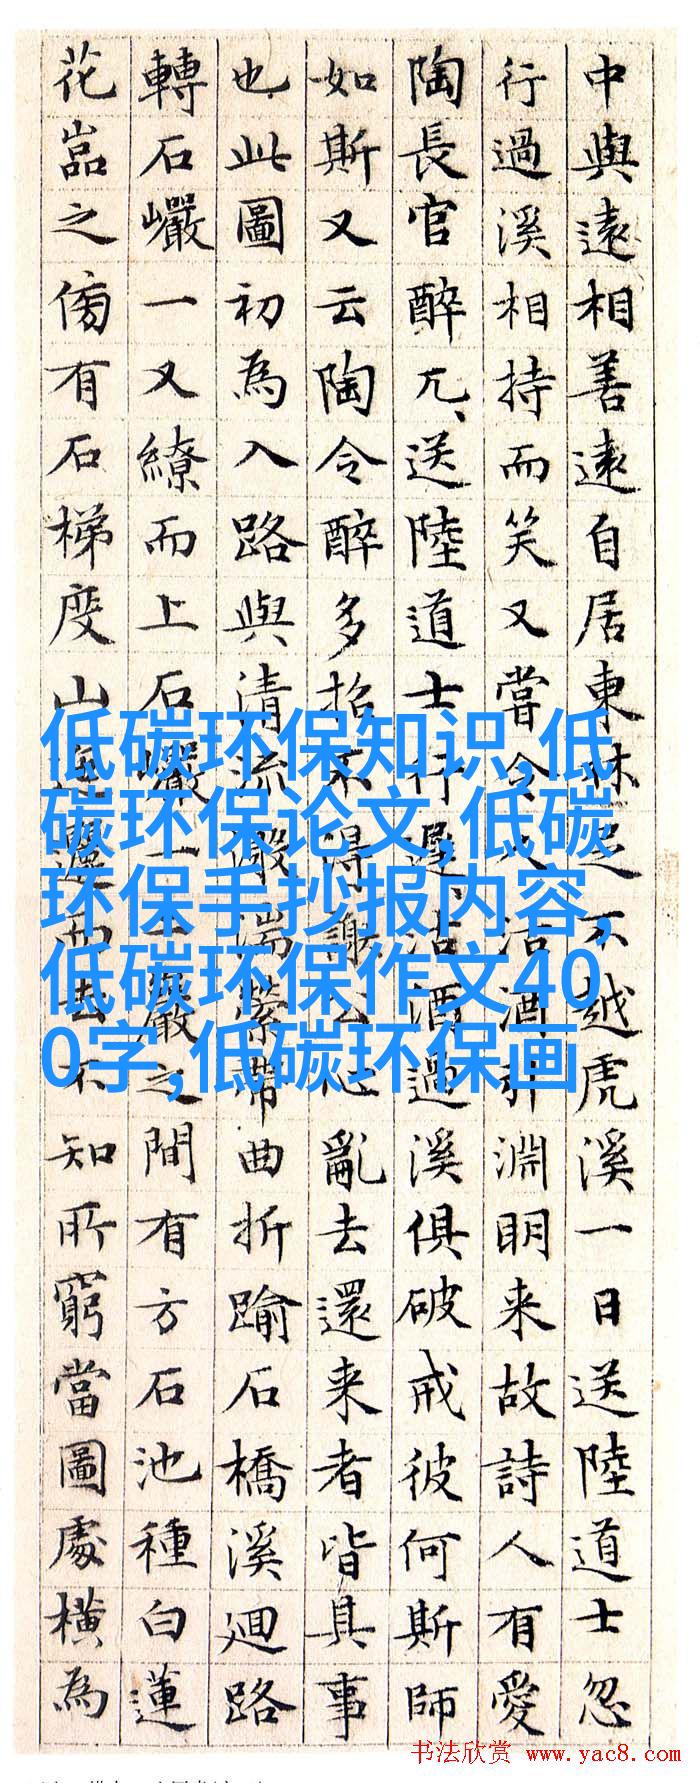 中與遠相善遠自居東林足不越虎溪一日送陸道士忽
行過溪相持而笑又嘗令人沽酒引淵明来故詩人有愛
陶長官醉兀、送陸道士行遲、沽酒過溪俱破戒彼何斯師
如斯又云陶令醉多招不得謝公心亂去還来者皆具事
也此圖初為入路與清流激湍縈帶曲折踰石橋溪廻路
轉石巗一又繚而上石巗巗之間有方石池種白蓮
花嵓之傍有石梯度山迤邐西去不知所窮當圖處横為
低碳环保知识,低
碳环保论文,低碳
环保手抄报内容,
低碳环保作文40
0字,低碳环保画
书法欣赏 www.yac8.com